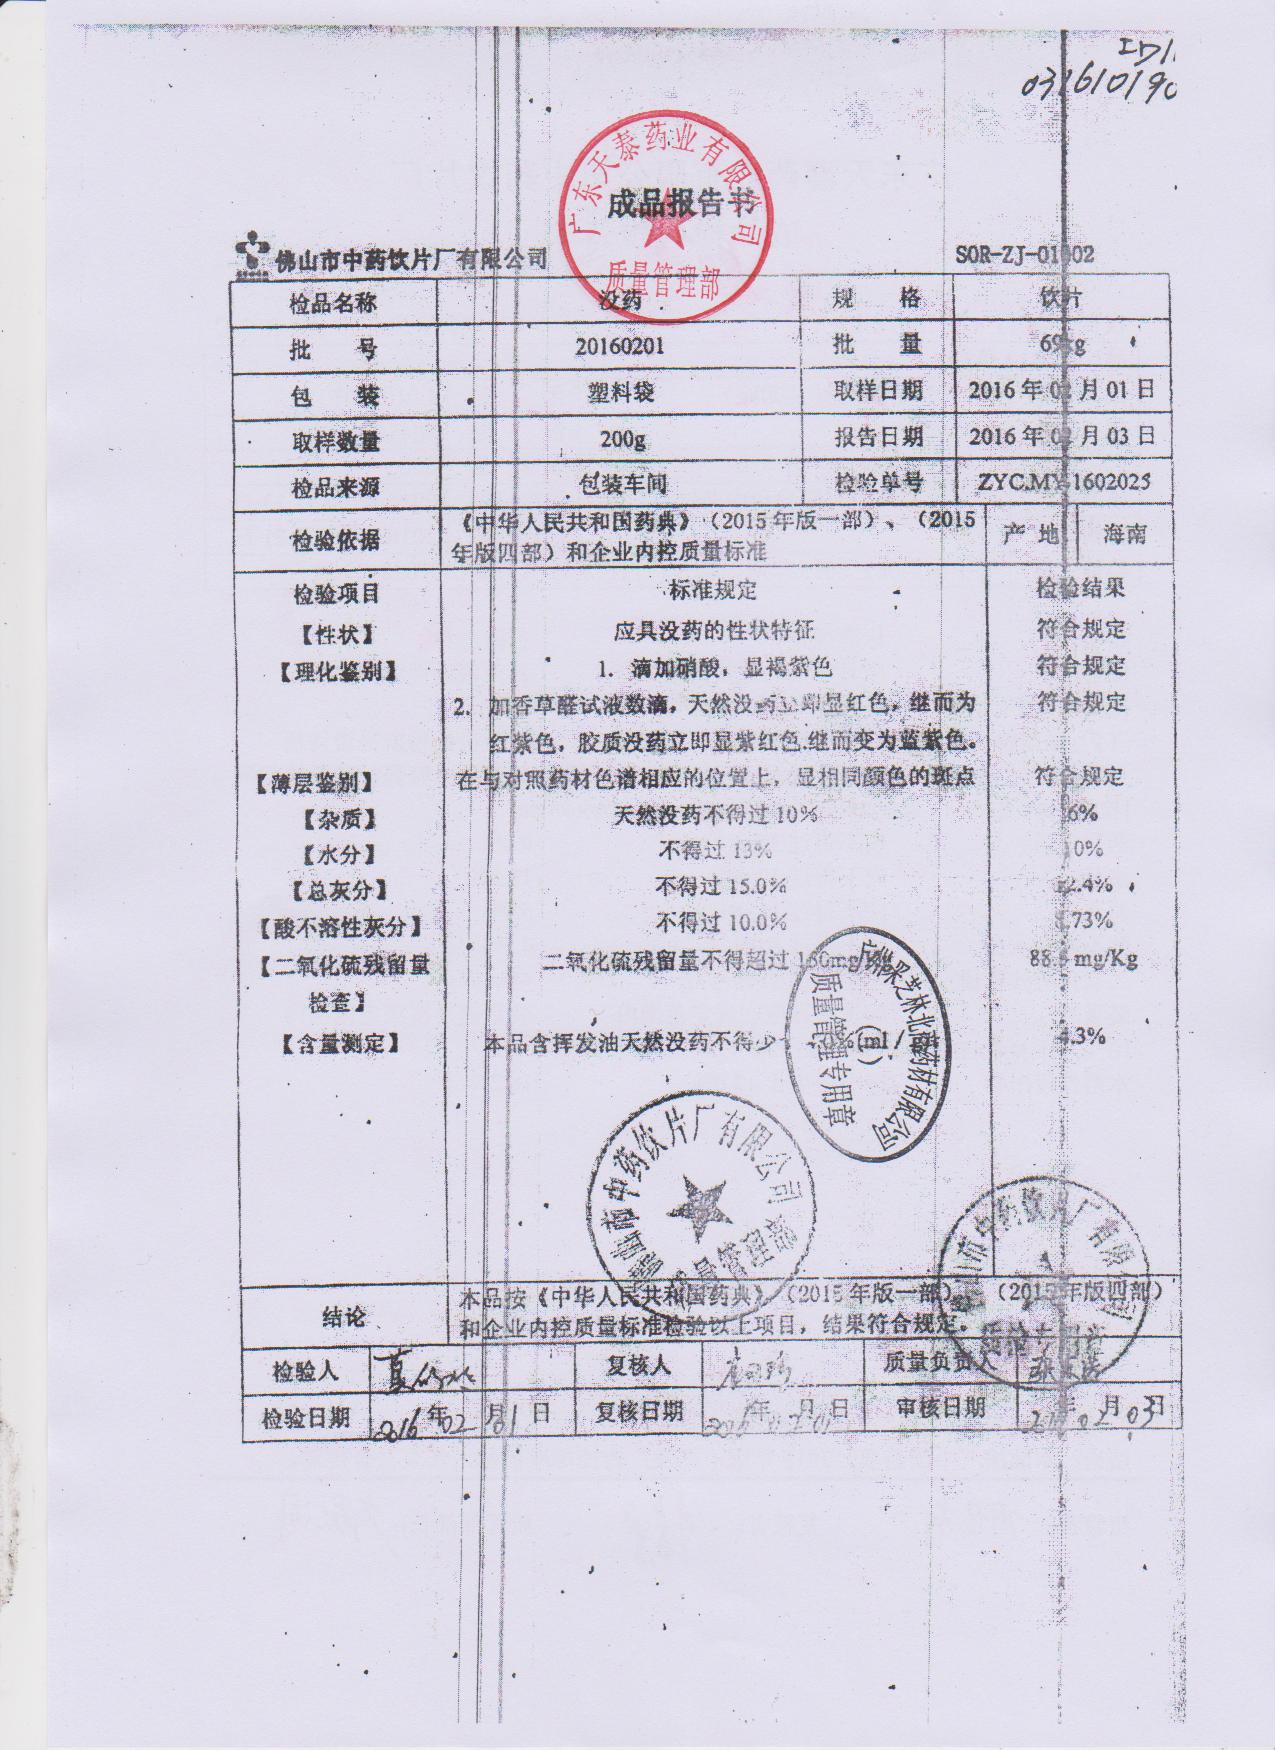 031610190
广东天泰药业有限公司
质量管理部
成品报告书
佛山市中药饮片厂有限公司 SOR-ZJ-01002
检品名称 没药 规 格 饮片
批 号 20160201 批 量 kg
包 装 塑料袋 取样日期 2016年02月01日
取样数量 200g 报告日期 2016年02月03日
检品来源 包装车间 检验单号 ZYC.MY.1602025
检验依据 《中华人民共和国药典》（2015年版一部）、（2015
年版四部）和企业内控质量标准 产 地 海南
检验项目 标准规定 检验结果
【性状】 应具没药的性状特征 符合规定
【理化鉴别】 1. 滴加硝酸，显褐紫色 符合规定
2. 加香草醛试液数滴，天然没药立即显红色，继而为 符合规定
红紫色，胶质没药立即显紫红色.继而变为蓝紫色。
【薄层鉴别】 在与对照药材色谱相应的位置上，显相同颜色的斑点 符合规定
【杂质】 天然没药不得过10% 6%
【水分】 不得过13% 10%
【总灰分】 不得过15.0% 2.4%
【酸不溶性灰分】 不得过10.0% 73%
【二氧化硫残留量 二氧化硫残留量不得超过150mg 88. mg/Kg
检查】
【含量测定】 本品含挥发油天然没药不得少 %(ml/ 4.3%
采芝林北商药材有限公司
质量管理专用章
佛山市中药饮片厂有限公司
质量管理部
佛山市中药饮片厂有限公司
质检专用章
结论 本品按《中华人民共和国药典》（2015年版一部） （2015年版四部）
和企业内控质量标准检验以上项目，结果符合规定。
检验人 复核人 质量负责人
检验日期 2016年02月01日 复核日期 年 月 日 审核日期 年02月03日